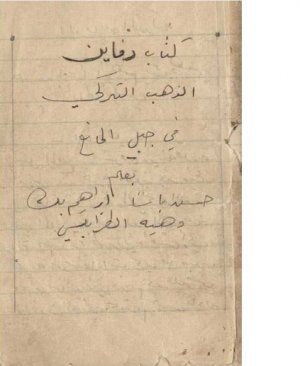 كتاب دفاين
الذهب التركي
في جبل المانع
بقلم
حسين باشا ابراهيم بك
وهيبه الطرابلسي